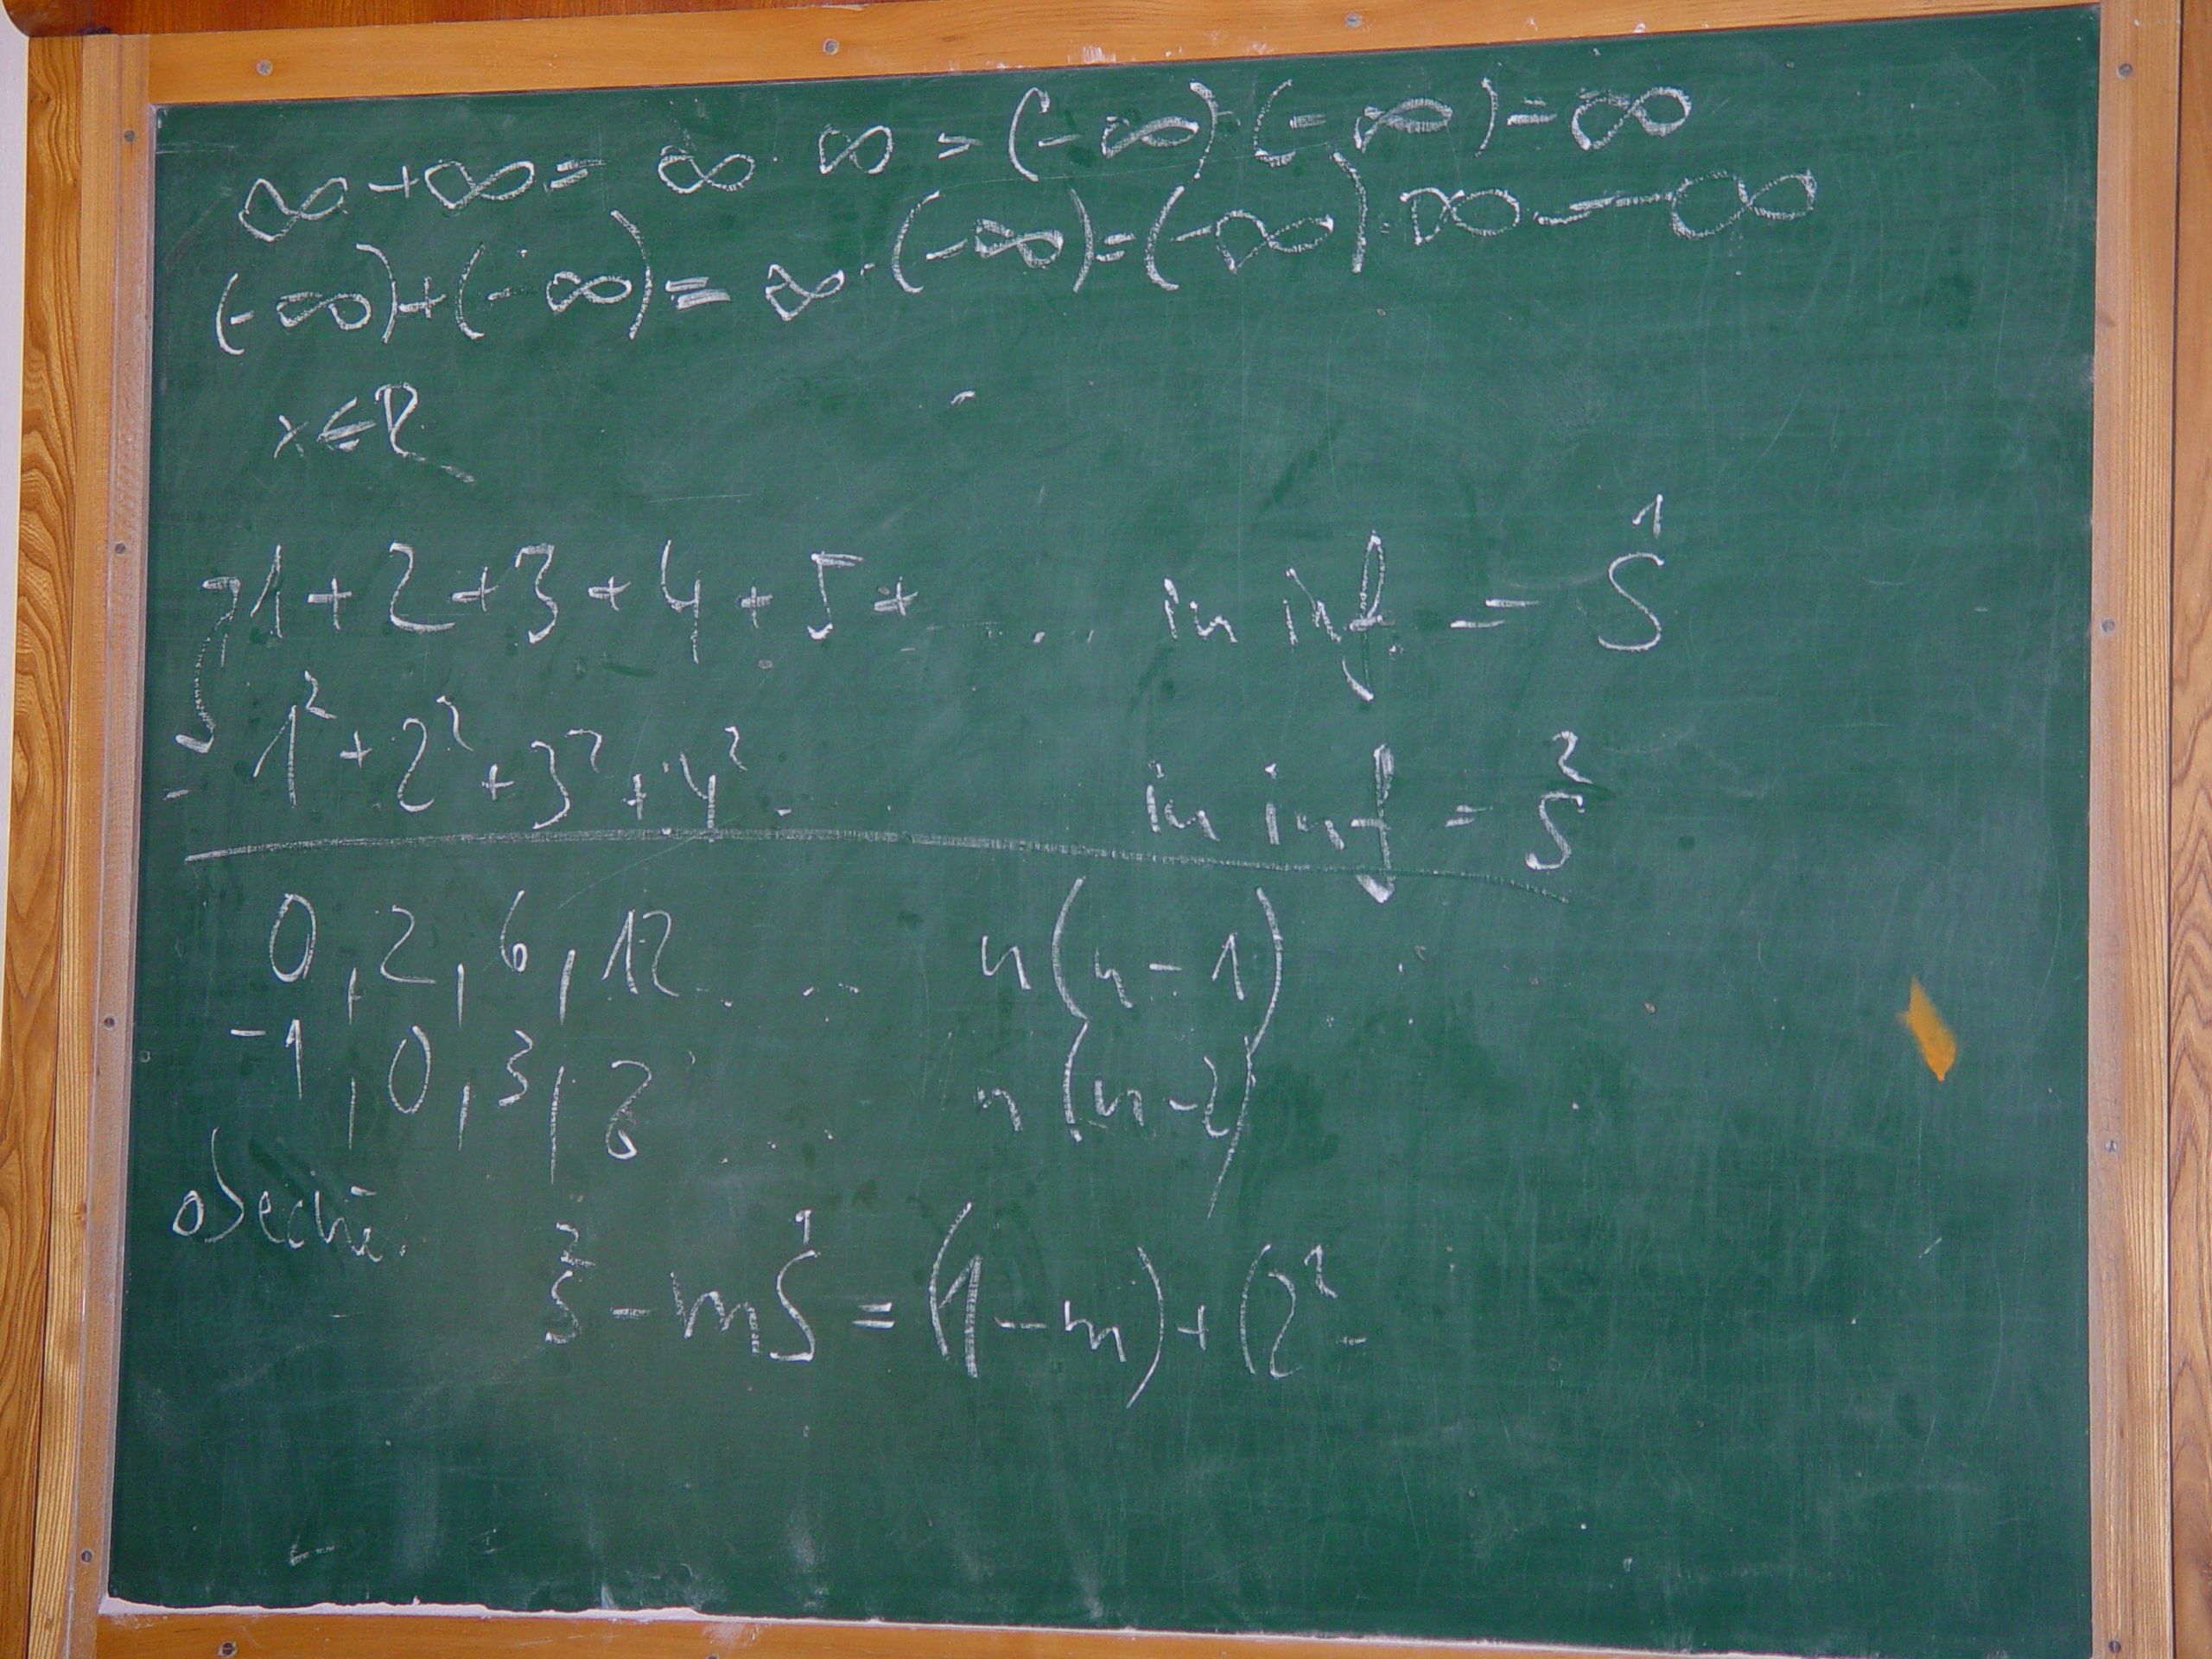 ∞ + ∞ = ∞ · ∞ = (-∞) · (-∞) = ∞
(-∞) + (-∞) = ∞ · (-∞) = (-∞) · ∞ = -∞
x ∈ R
1 + 2 + 3 + 4 + 5 + ... in inf = S¹
- 1² + 2² + 3² + 4² ... in inf = S²
0, 2, 6, 12 ... n(n-1)
-1, 0, 3, 8 ... n(n-2)
obecně:
S² - mS¹ = (1 - m) + (2² -